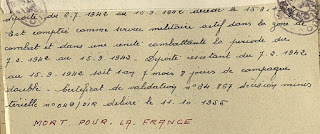 Déporté du 8.7.1942 au 15.9.1942 décédé le 15.9.1942
Est compté comme service militaire actif dans la zone de
combat et dans une unité combattante la période du
7.2.1942 au 15.9.1942. Déporté résistant du 7.2.1942
au 15.9.1942 soit 7 mois 9 jours de campagne
double - Certificat de validation n° 34.867 décision minis
térielle n° délivré le 11.10.1955
MORT POUR LA FRANCE